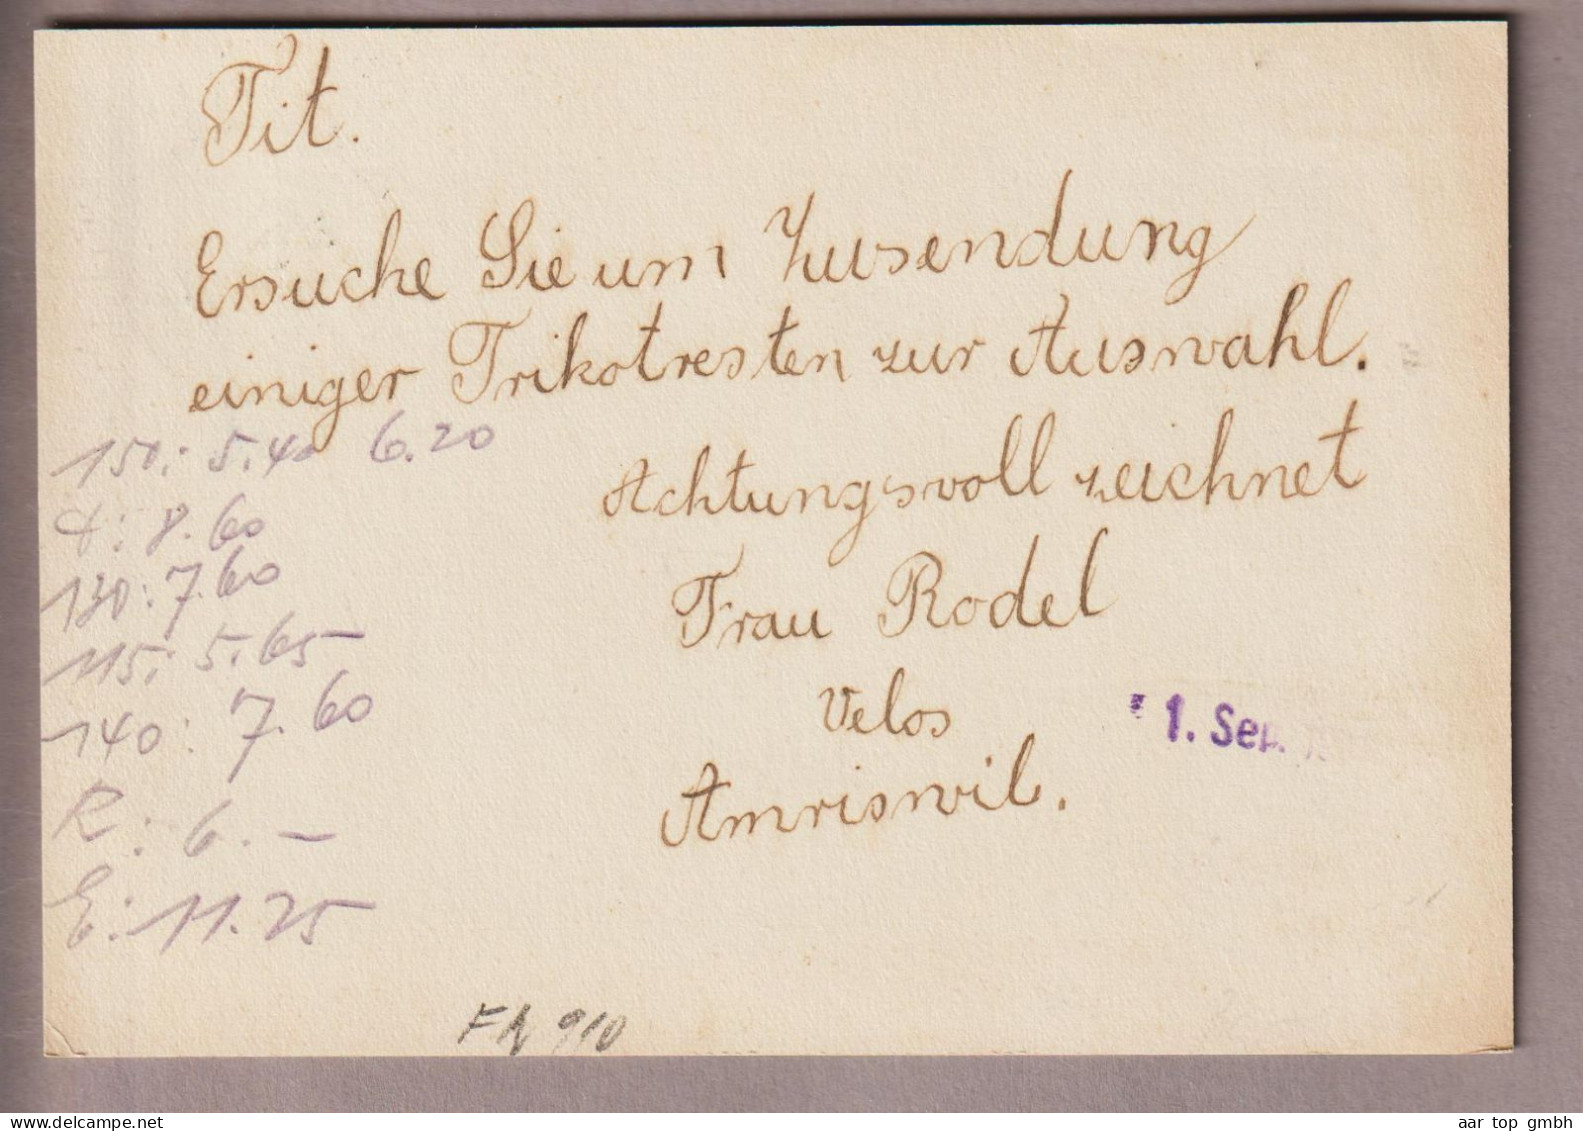 Tit.
Ersuche Sie um Zusendung
einiger Trikotresten zur Auswahl.
Achtungsvoll zeichnet
Frau Rodel
Velos
Amriswil.
150: 5.40 6.20
8.60
130: 7.60
115: 5.65
140: 7.60
R: 6.-
E: 11.25
1. Sep.
910
aar top gmbh